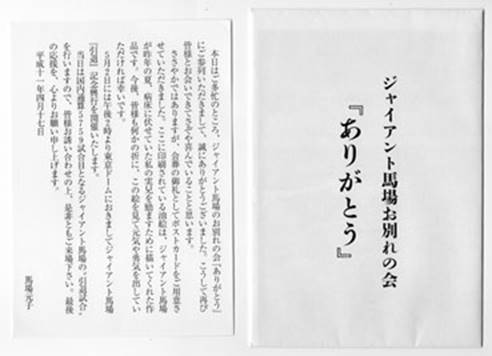 本日はご多忙のところ、ジャイアント馬場のお別れの会『ありがとう』
にご参列いただきまして、誠にありがとうございました。こうして再び
皆様とお会いできてさぞや喜んでいることと思います。
ささやかではありますが、会葬の御礼としてポストカードをご用意さ
せていただきました。ここに印刷されている油絵は、ジャイアント馬場
が昨年の夏、病床に伏せていた私の実兄を励ますために描いてくれた作
品です。今後、皆様も何かの折に、この絵を見て元気や勇気を出してい
ただければ幸いです。
5月2日には午後2時より東京ドームにおきましてジャイアント馬場
『引退』記念興行を開催いたします。
当日は国内通算5759試合目となるジャイアント馬場の“引退試合”
を行いますので、皆様お誘い合わせの上、是非ともご来場下さい。最後
の応援を、心よりお願い申し上げます。
平成十一年四月十七日
馬場元子
ジャイアント馬場お別れの会
『ありがとう』